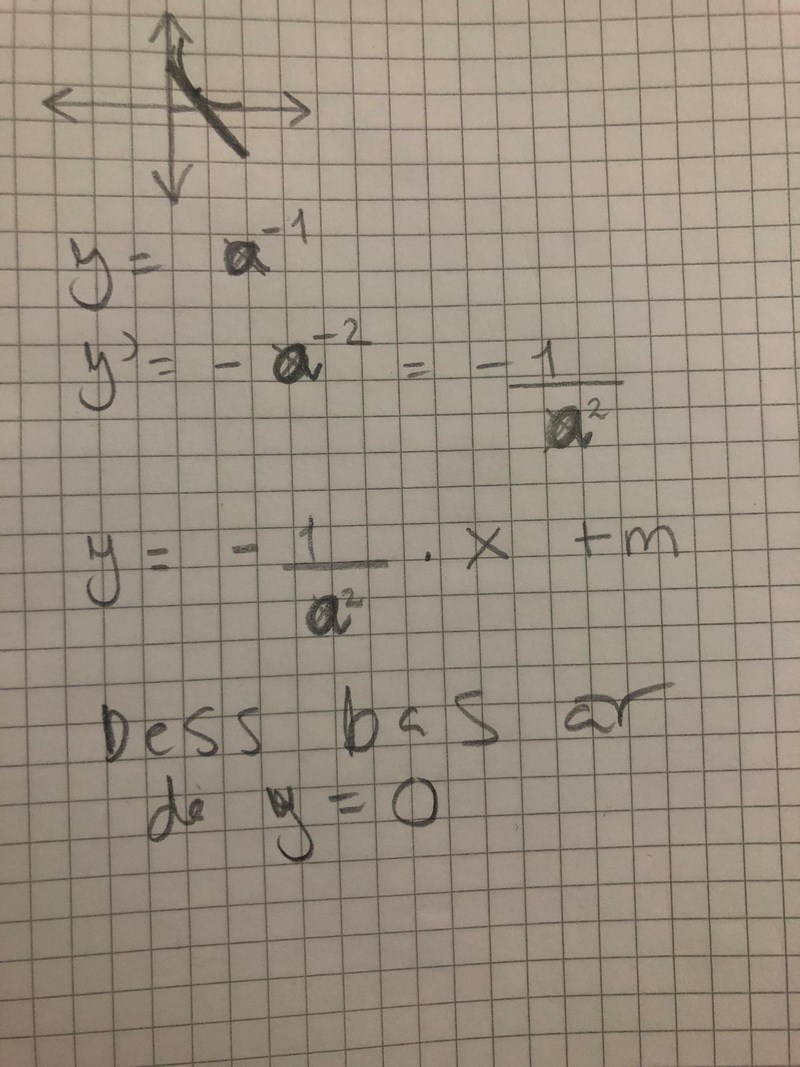 y = a⁻¹
y' = - a⁻² = - 1/a²
y = - 1/a² · x + m
Dess bas är
då y = 0